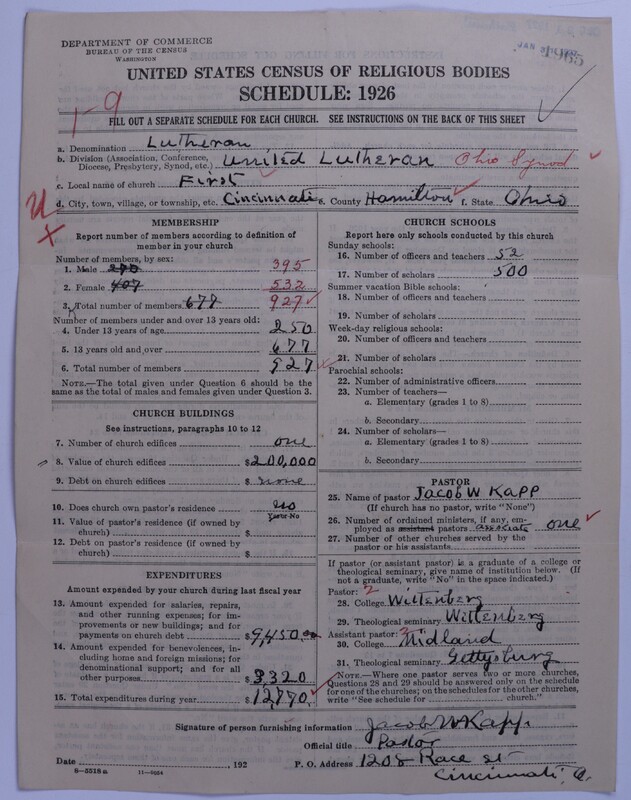 DEPARTMENT OF COMMERCE
BUREAU OF THE CENSUS
WASHINGTON
1965
UNITED STATES CENSUS OF RELIGIOUS BODIES
SCHEDULE: 1926
1-9
FILL OUT A SEPARATE SCHEDULE FOR EACH CHURCH. SEE INSTRUCTIONS ON THE BACK OF THIS SHEET
a. Denomination Lutheran
b. Division (Association, Conference, Diocese, Presbytery, Synod, etc.) United Lutheran Ohio Synod
c. Local name of church First
d. City, town, village, or township, etc. Cincinnati e. County Hamilton f. State Ohio
MEMBERSHIP
Report number of members according to definition of
member in your church
Number of members, by sex:
1. Male 270 395
2. Female 407 532
3. Total number of members 677 927
Number of members under and over 13 years old:
4. Under 13 years of age 250
5. 13 years old and over 677
6. Total number of members 927
NOTE.—The total given under Question 6 should be
same as the total of males and females given under Question 3.
CHURCH BUILDINGS
See instructions, paragraphs 10 to 12
7. Number of church edifices one
8. Value of church edifices $200,000
9. Debt on church edifices $ none
10. Does church own pastor's residence? no
Yes or No
11. Value of pastor's residence (if owned by
church) $
12. Debt on pastor's residence (if owned by
church) $
EXPENDITURES
Amount expended by your church during last fiscal year
13. Amount expended for salaries, repairs,
and other running expenses; for im-
provements or new buildings; and for
payments on church debt $9,450.00
14. Amount expended for benevolences, in-
cluding home and foreign missions; for
denominational support; and for all
other purposes $3320
15. Total expenditures during year $12,770.
CHURCH SCHOOLS
Report here only schools conducted by this church
Sunday schools:
16. Number of officers and teachers 52
17. Number of scholars 500
Summer vacation Bible schools:
18. Number of officers and teachers
19. Number of scholars
Week-day religious schools:
20. Number of officers and teachers
21. Number of scholars
Parochial schools:
22. Number of administrative officers
23. Number of teachers—
a. Elementary (grades 1 to 8)
b. Secondary
24. Number of scholars—
a. Elementary (grades 1 to 8)
b. Secondary
PASTOR
25. Name of pastor Jacob W Kapp
(If church has no pastor, write "None")
26. Number of ordained ministers, if any, em-
ployed as assistant pastors associate one
27. Number of other churches served by the
pastor or his assistants
If pastor (or assistant pastor) is a graduate of a college or
theological seminary, give name of institution below. (If
not a graduate, write "No" in the space indicated.)
Pastor: 2
28. College Wittenberg
29. Theological seminary Wittenberg
Assistant pastor:
30. College Midland
31. Theological seminary Gettysburg
NOTE.—Where one pastor serves two or more churches,
Questions 28 and 29 should be answered only on the schedule
for one of the churches; on the schedules for the other churches,
write "See schedule for church."
Signature of person furnishing information Jacob W Kapp
Official title Pastor
Date , 192 P. O. Address 1208 Race st
Cincinnati, O.
8-5518a 11-9054